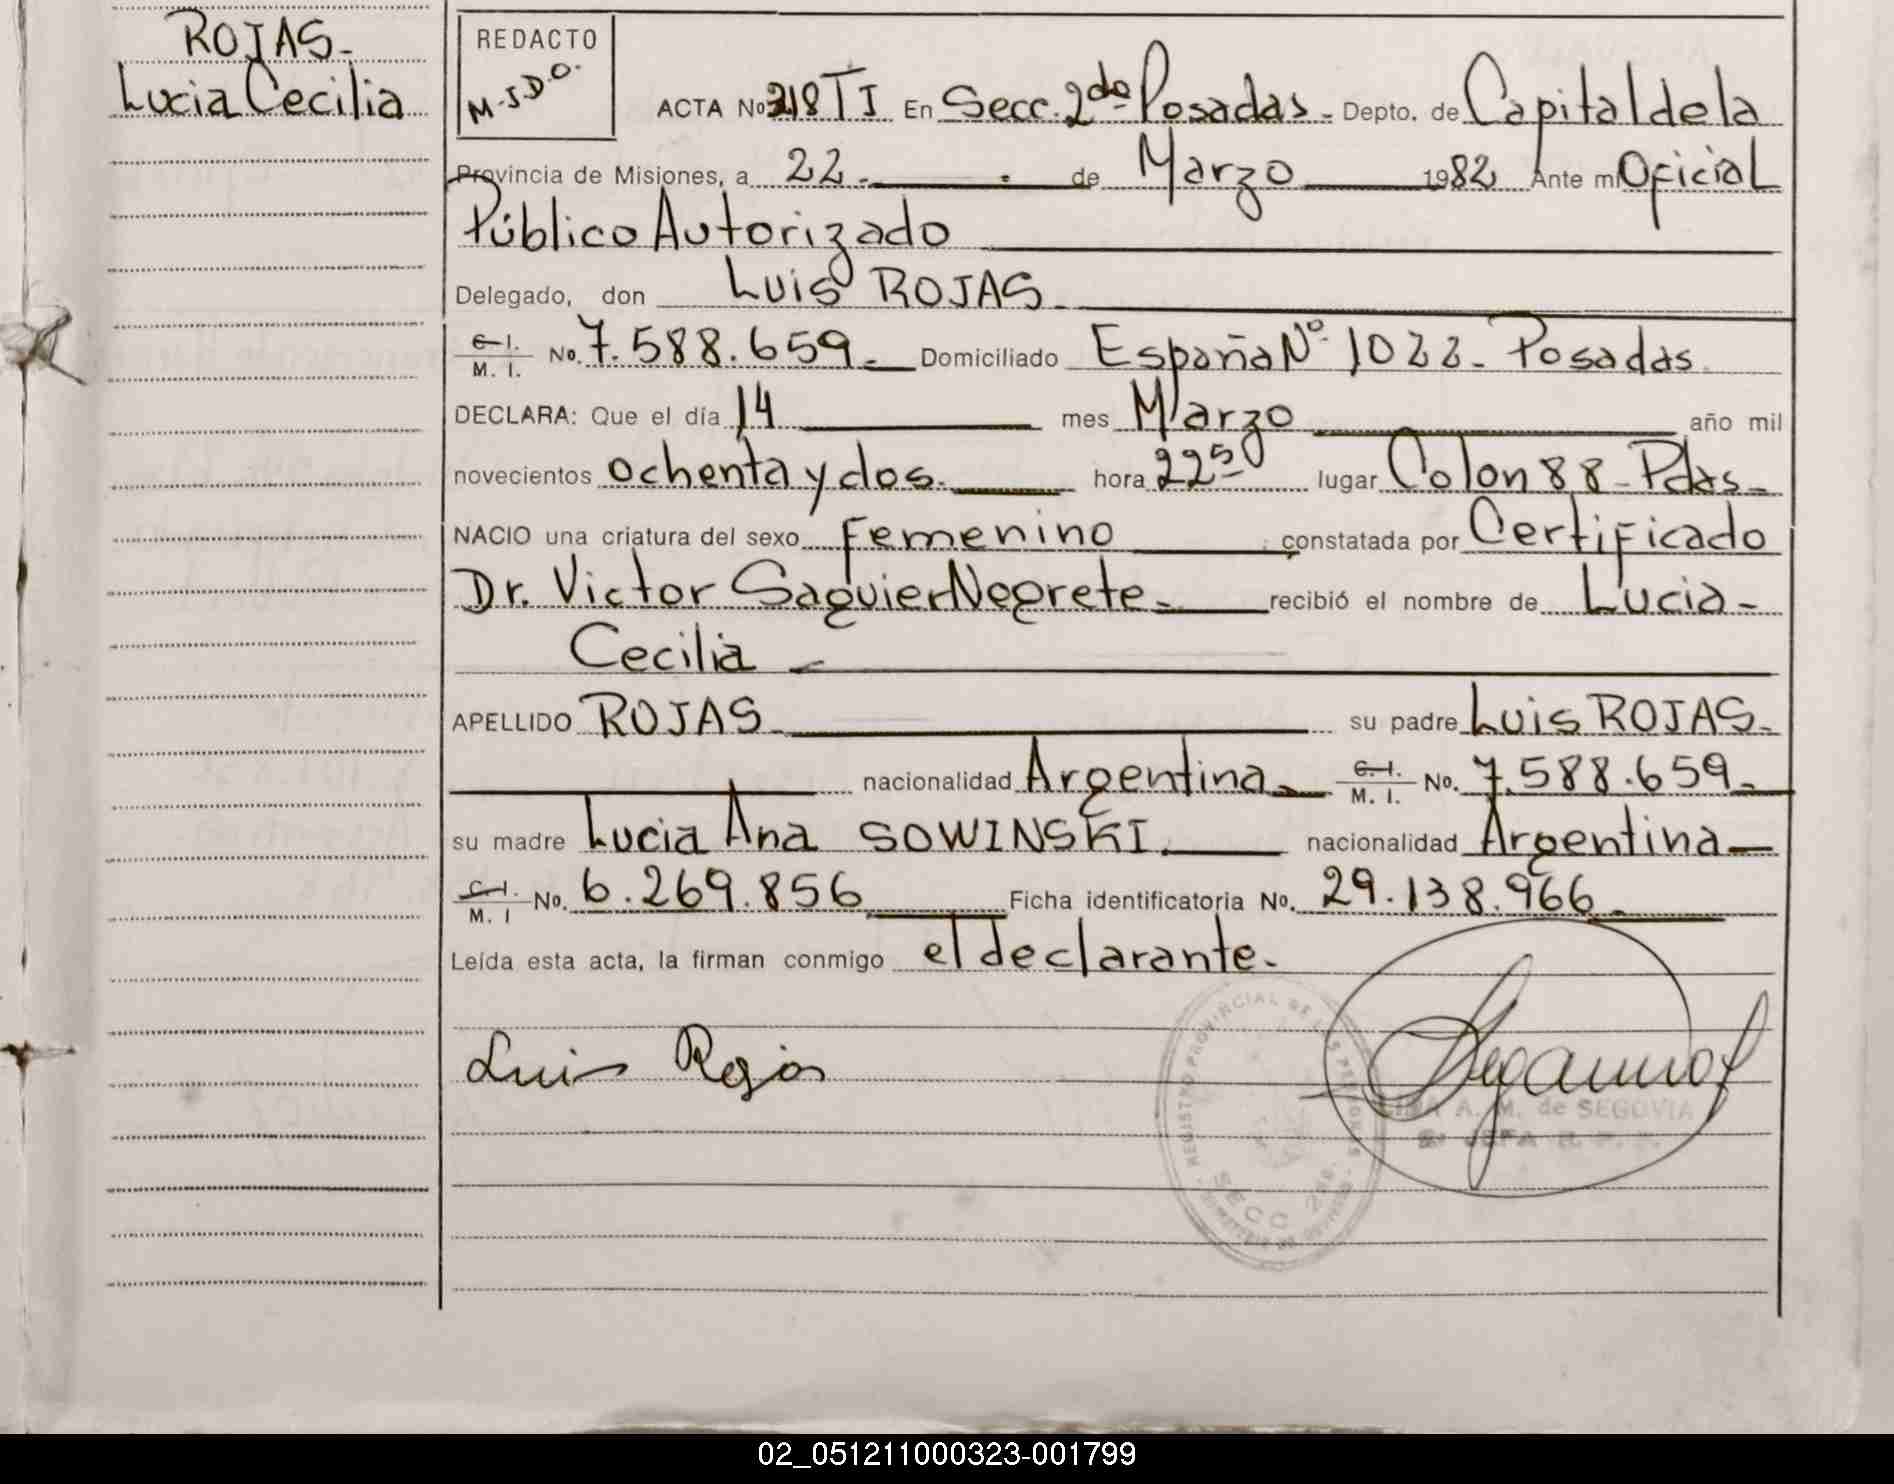 ROJAS-
Lucia Cecilia
REDACTO
M.J.D.O.
ACTA No 218 TI En Secc. 2do Posadas - Depto. de Capital de la
Provincia de Misiones, a 22 - de Marzo 1982 Ante mi Oficial
Público Autorizado
Delegado, don Luis ROJAS
C. I. M. I. No. 7.588.659. Domiciliado España Nº 1022- Posadas
DECLARA: Que el día 14 mes Marzo año mil
novecientos ochenta y dos. hora 22 50 lugar Colon 88 - Pdas-
NACIO una criatura del sexo Femenino constatada por Certificado
Dr. Victor Saguier Negrete- recibió el nombre de Lucia-
Cecilia -
APELLIDO ROJAS su padre Luis ROJAS-
nacionalidad Argentina C. I. M. I. No. 7.588.659-
su madre Lucia Ana SOWINSKI. nacionalidad Argentina
C. I. M. I No. 6.269.856 Ficha identificatoria No. 29.138.966
Leída esta acta, la firman conmigo el declarante.
Luis Rojas
REGISTRO PROVINCIAL DE LAS PERSONAS
SECC 2da.
A. M. de SEGOVIA
JEFA R. P. P.
02_051211000323-001799